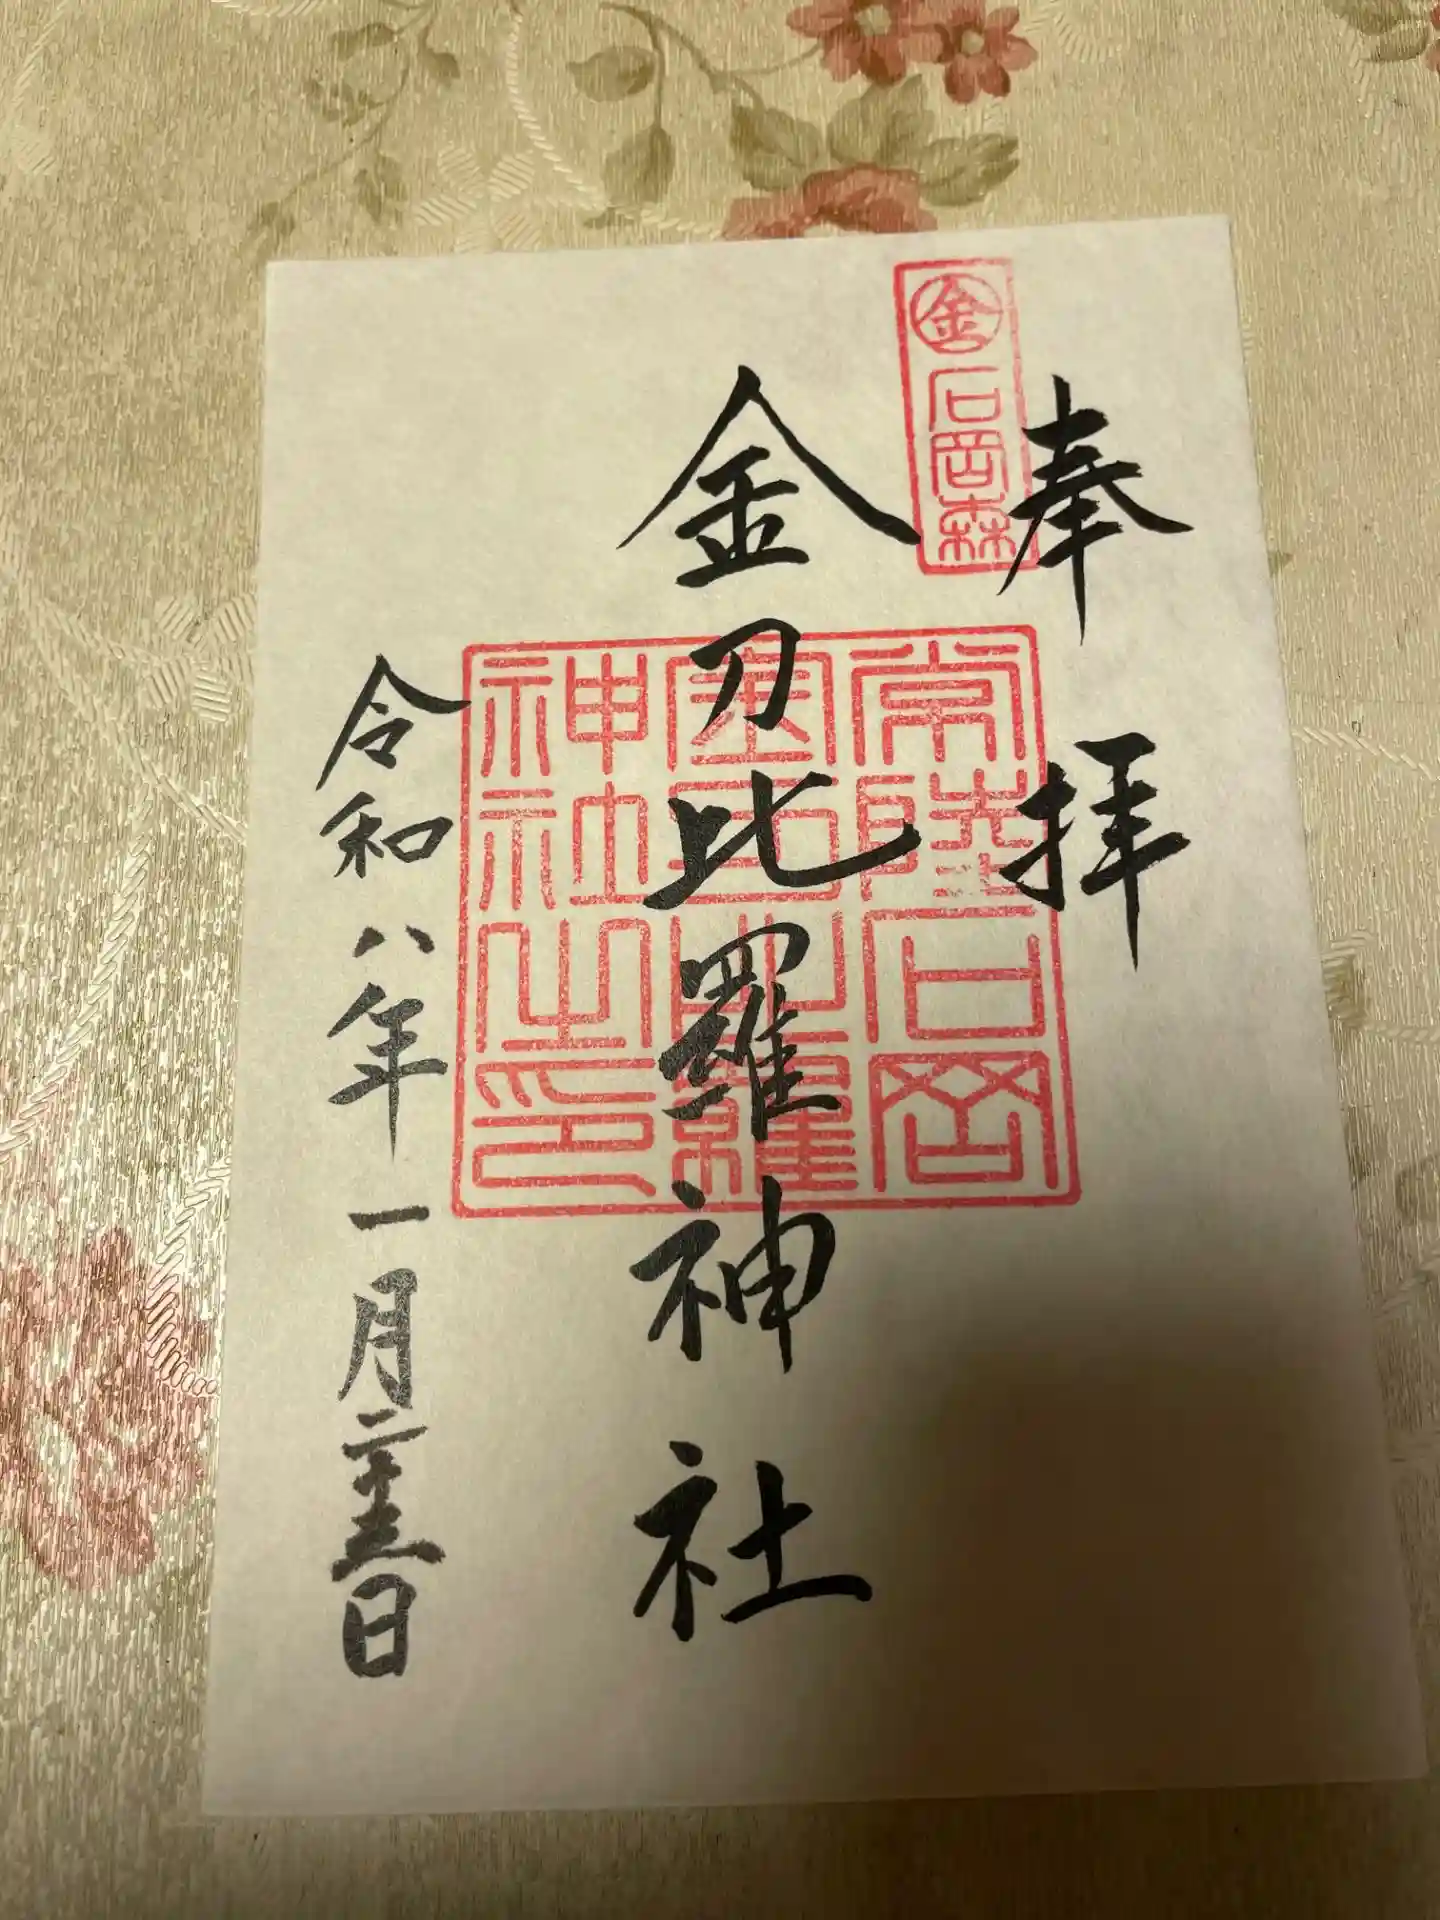 奉拝
㊎石岡森
金刀比羅神社
常陸石岡
神社之印
令和八年一月二十五日